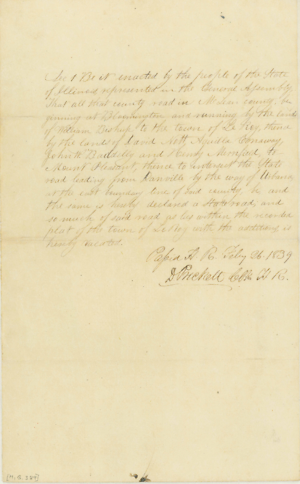 Sec 1 Be it enacted by the people of the State
of Illinois represented in the General Assembly
That all that county road in McLean county, be
ginning at Bloomington and running by the lands
of William Bishop to the town of Le Roy, thence
by the lands of David Nott, Aquilla Conaway,
John W Baddeley and Henry Momford, to
Stewart, thence to intersect the State
road leading from Danville by the way of Urbana
at the east boundary line of said county, be and
the same is hereby declared a State road, and
so much of said road as lies within the recorded
plat of the town of Le Roy with the
is hereby vacated.
Passed H. R. Feby 26. 1839
D Prickett Clk H R.